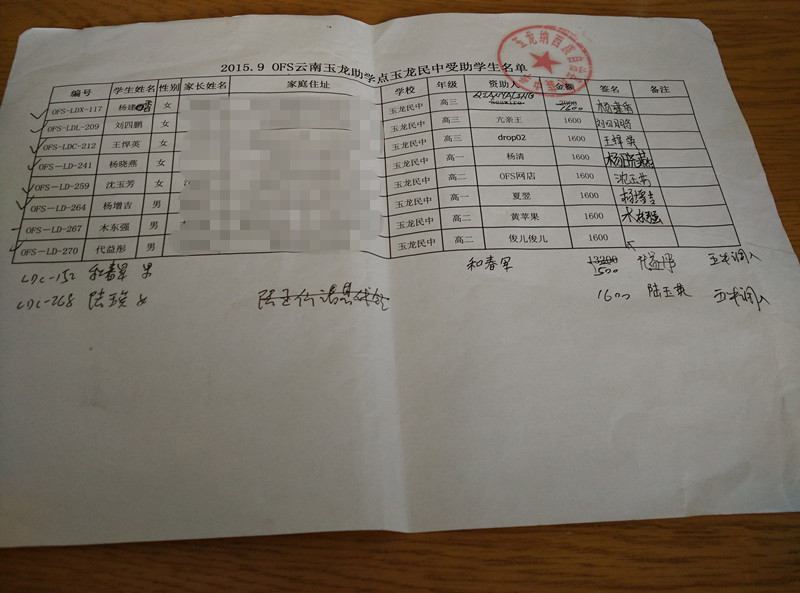 2015.9 OFS云南玉龙助学点玉龙民中受助学生名单
编号 学生姓名 性别 家长姓名 家庭住址 学校 年级 资助人 金额 签名 备注
OFS-LDX-117 杨建 女 玉龙民中 高三 QIANYALING 1600
OFS-LDL-209 刘四鹏 女 玉龙民中 高三 亢亲王 1600 刘四鹏
OFS-LDC-212 王悍英 女 玉龙民中 高三 drop02 1600 王悍英
OFS-LD-241 杨晓燕 女 玉龙民中 高一 杨清 1600 杨晓燕
OFS-LD-259 沈玉芳 女 玉龙民中 高二 OFS网店 1600 沈玉芳
OFS-LD-264 杨增吉 男 玉龙民中 高一 夏翌 1600 杨增吉
OFS-LD-267 木东强 男 玉龙民中 高二 黄苹果 1600 木东强
OFS-LD-270 代益彤 男 玉龙民中 高二 俊儿俊儿 1600
LDC-152 和春军 男 和春军 1500
LDC-268 女 1600